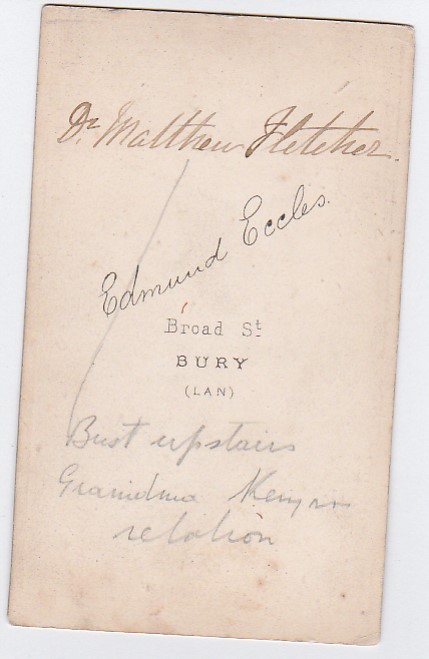 Dr. Matthew Fletcher.
Edmund Eccles.
Broad St.
BURY
(LAN)
Bust upstairs
Grandma Kenyon
relation